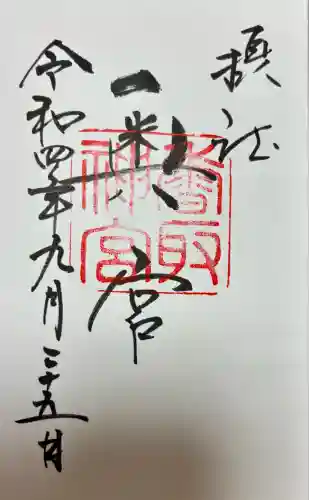 摂社
奥宮
香取
神宮
令和四年九月二十五日